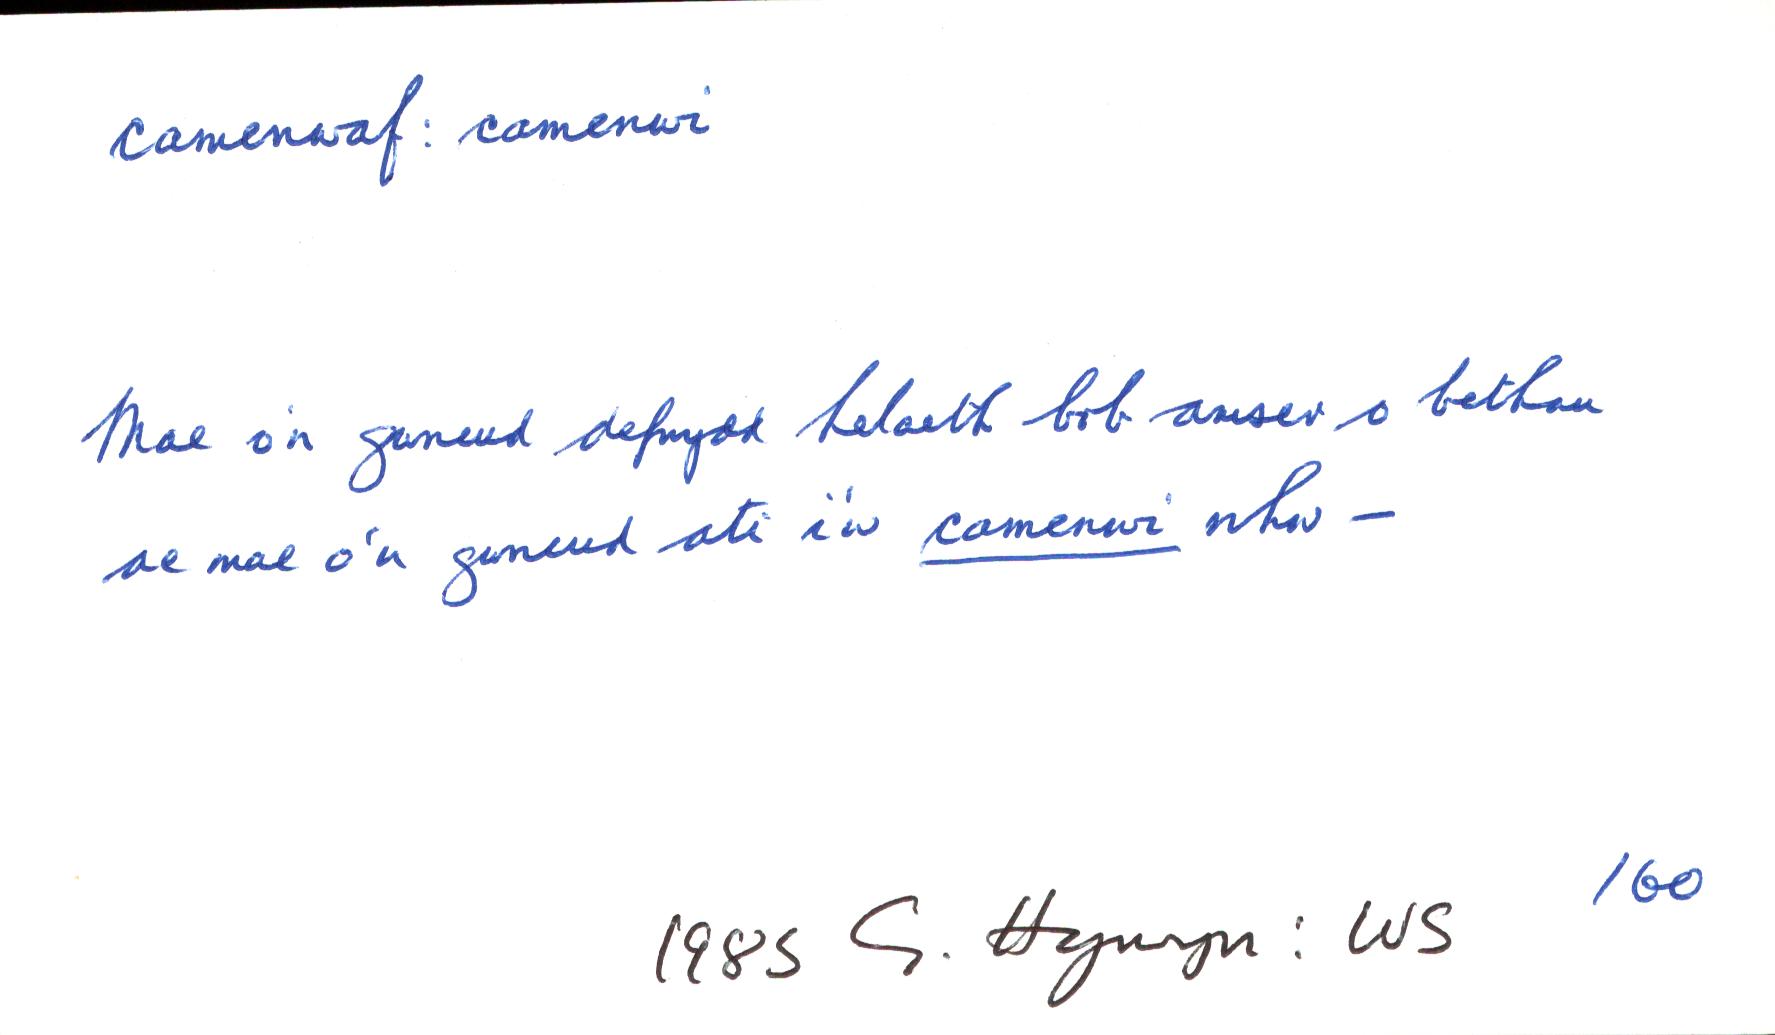 camenwaf: camenwi
Mae o'n gwneud defnydd helaeth bob amser o bethau
ac mae o'n gwneud ati i'w camenwi nhw –
160
1985 G. Hywyn: WS